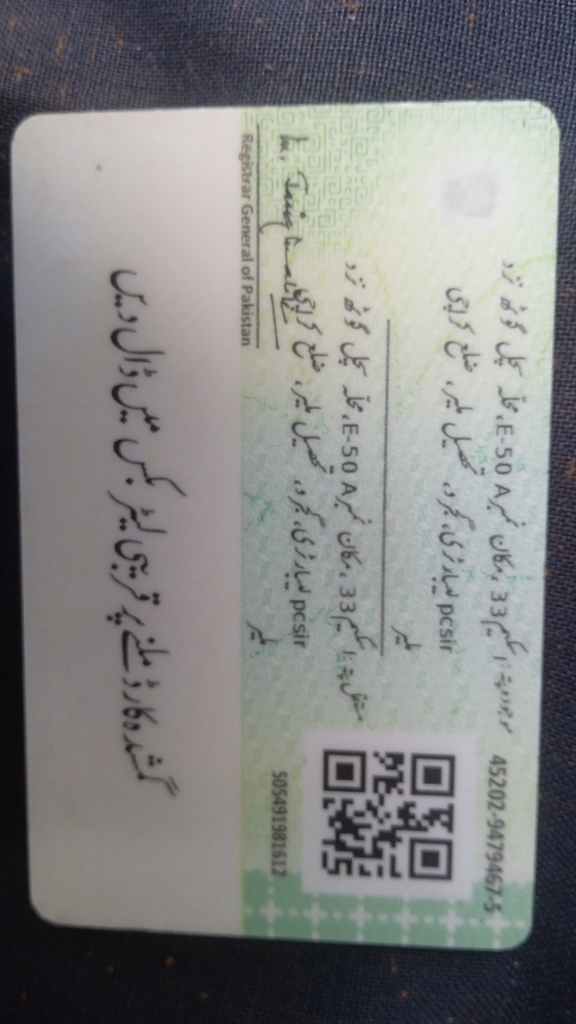 45202-9479467-5
موجودہ پتہ: اسکیم 33، مکان نمبر E-50 A، محلہ گوٹھ نزد
pcsir لیبارٹری، گجرو، تحصیل ملیر، ضلع کراچی
ملیر
مستقل پتہ: اسکیم 33، مکان نمبر E-50 A، محلہ گوٹھ نزد
pcsir لیبارٹری، گجرو، تحصیل ملیر، ضلع کراچی
ملیر
505491981612
Registrar General of Pakistan
گمشدہ کارڈ ملنے پر قریبی لیٹر بکس میں ڈال دیں